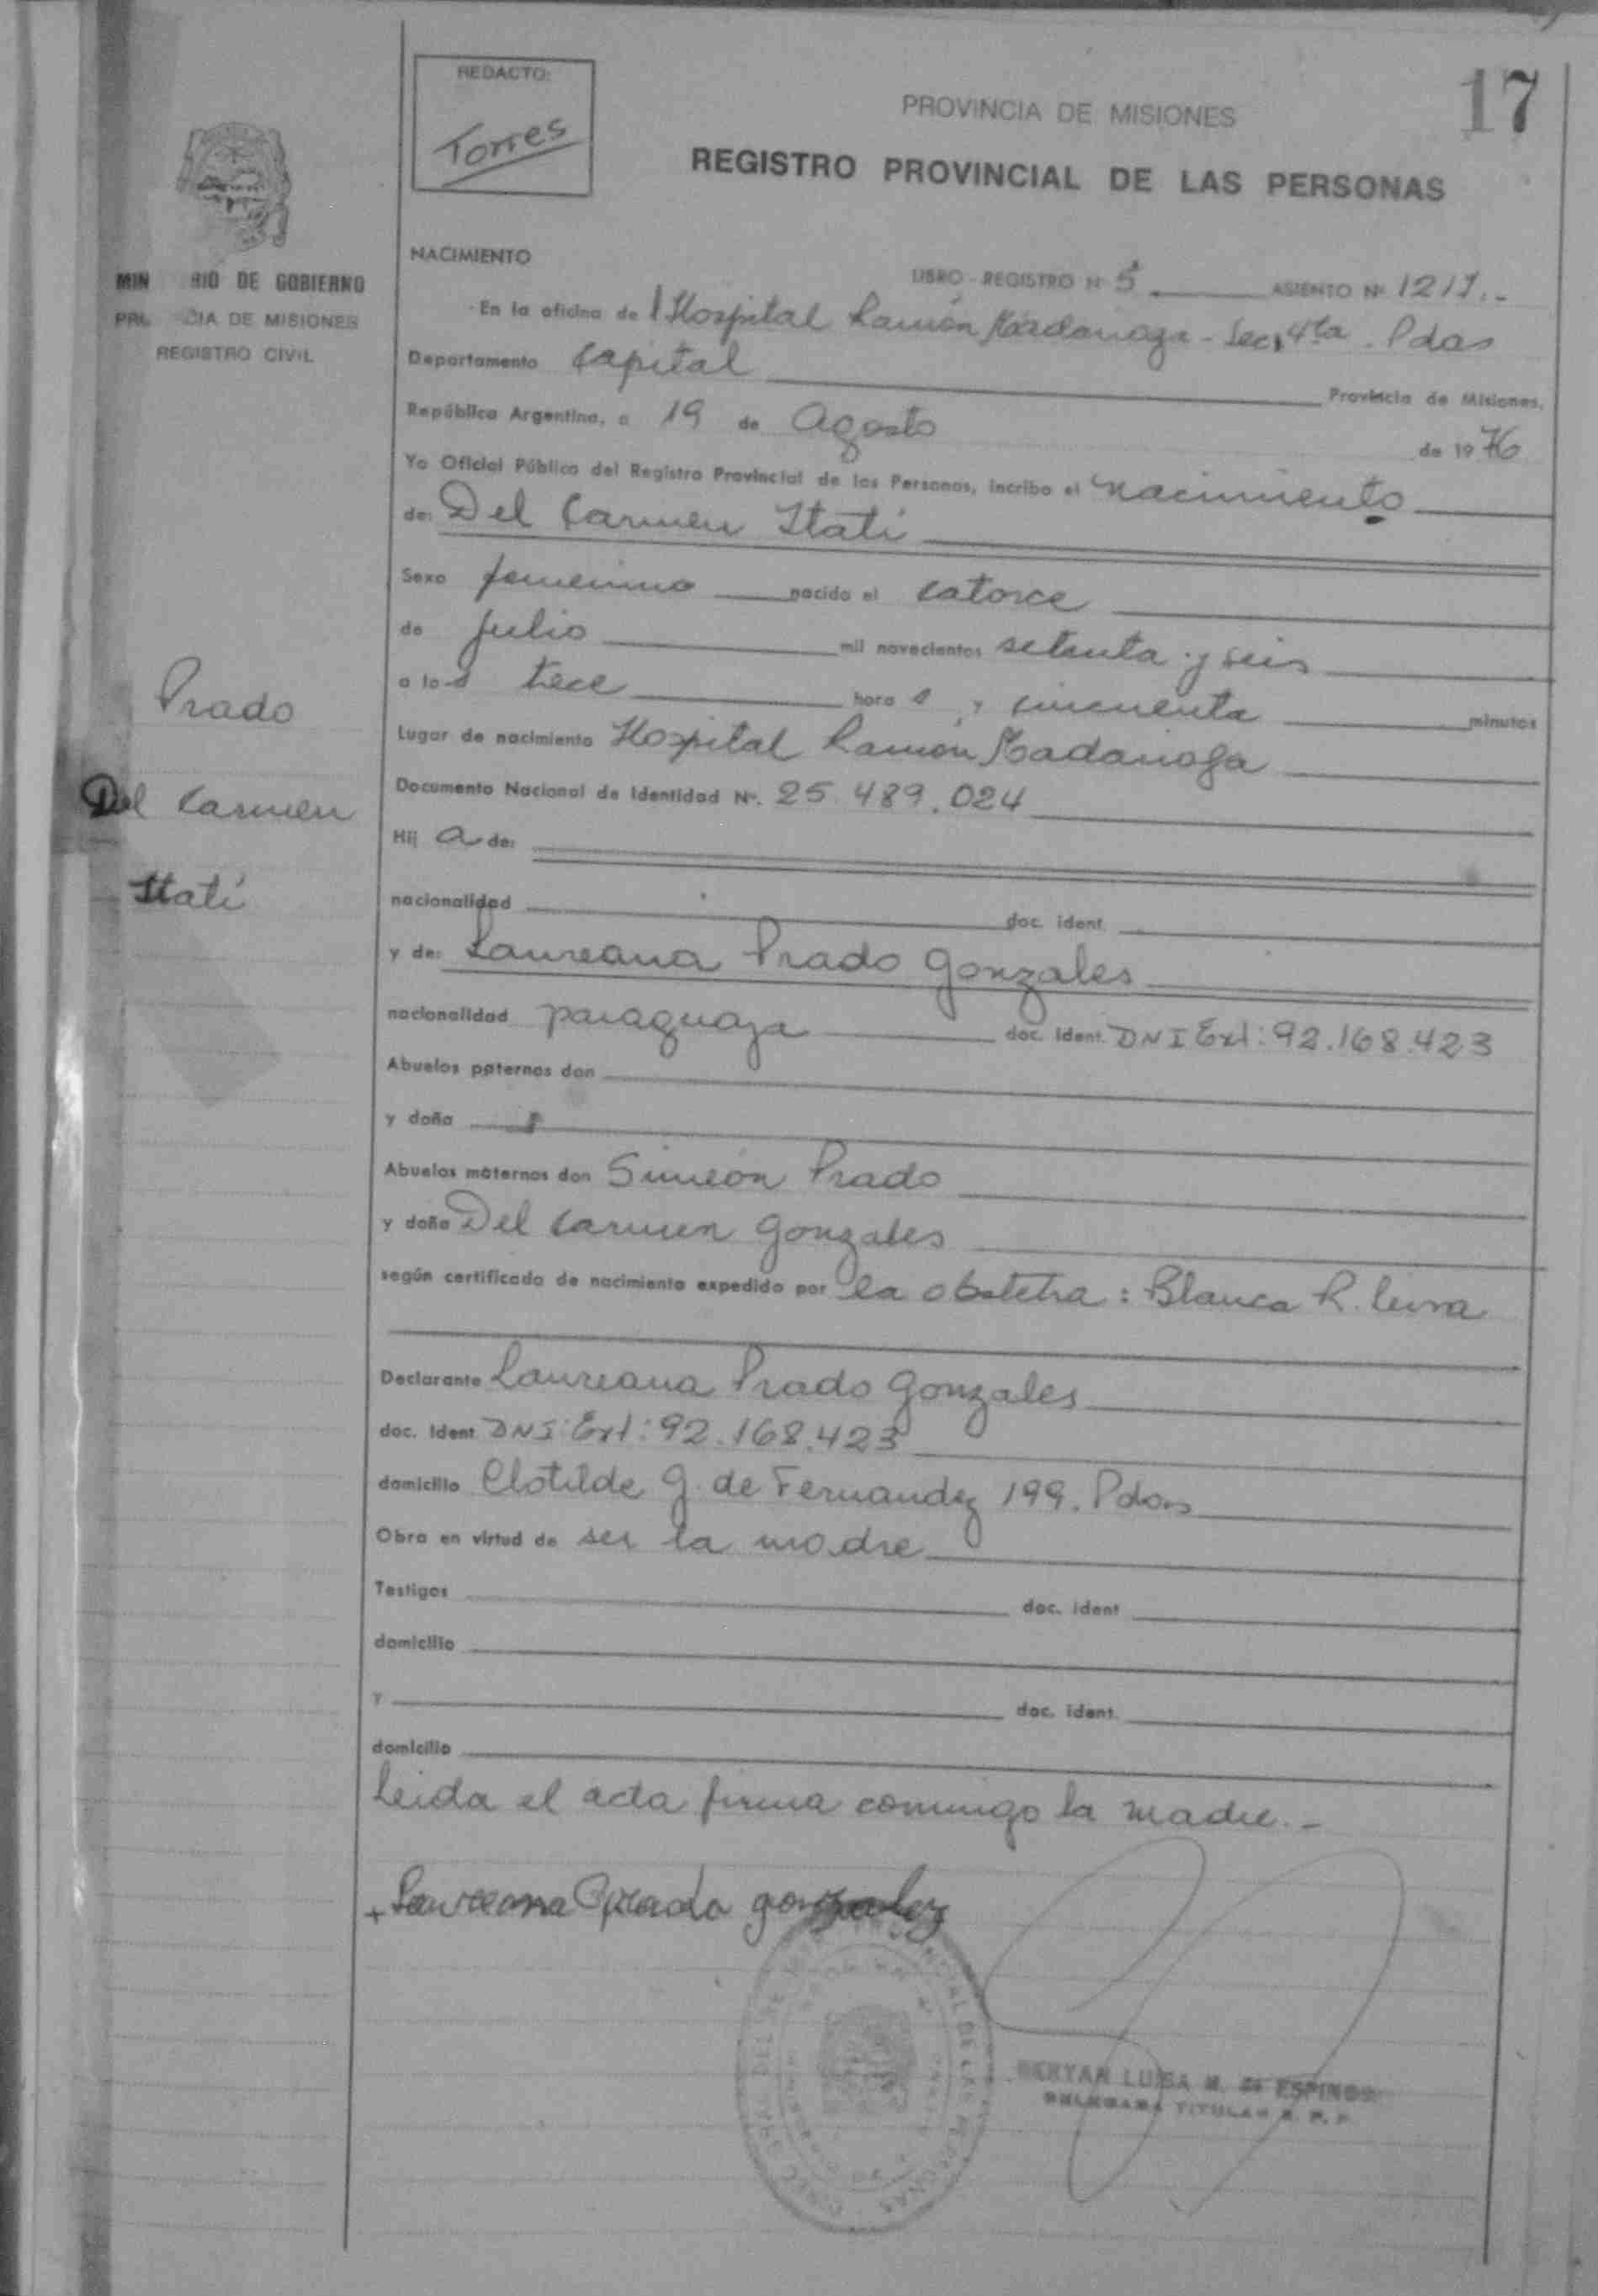 17
REDACTO:
Torres
PROVINCIA DE MISIONES
REGISTRO PROVINCIAL DE LAS PERSONAS
MIN RIO DE GOBIERNO
CIA DE MISIONES
REGISTRO CIVIL
Prado
Del Carmen
Itatí
NACIMIENTO
LIBRO - REGISTRO Nº 5 ASIENTO Nº 1217.-
En la oficina de l Hospital Ramón Madariaga - Sec. 4ta. Pdas
Departamento Capital Provincia de Misiones,
República Argentina, a 19 de Agosto de 1976
Yo Oficial Público del Registro Provincial de las Personas, incribo el nacimiento
de: Del Carmen Itatí
Sexo femenino nacido el catorce
de Julio mil novecientos setenta y seis
a las trece horas y cincuenta minutos
Lugar de nacimiento Hospital Ramón Madariaga
Documento Nacional de Identidad Nº. 25.489.024
Hij a de:
nacionalidad doc. ident.
y de: Laureana Prado Gonzales
nacionalidad paraguaya doc. ident. DNI Ext: 92.168.423
Abuelos paternos don
y doña
Abuelos maternos don Simeón Prado
y doña Del Carmen Gonzales
según certificado de nacimiento expedido por la obstetra: Blanca R. Leiva
Declarante Laureana Prado Gonzales
doc. ident DNI: Ext: 92.168.423
domicilio Clotilde G. de Fernandez 199. Pdas
Obra en virtud de ser la madre
Testigos doc. ident
domicilio
Y doc. ident.
domicilio
Leida el acta firma conmigo la madre.-
+ Laureana Prado gonzalez
LUISA M. de ESPINOS
TITULAR R. P. P.